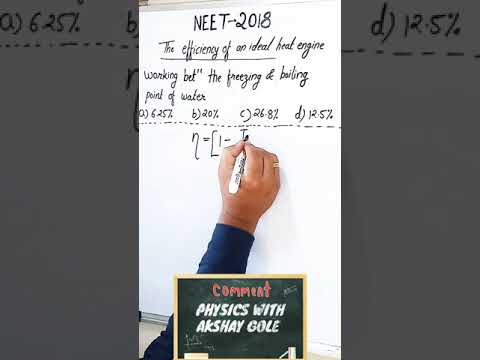 NEET-2018
The efficiency of an ideal heat engine
working betⁿ the freezing & boiling
point of water
a) 6.25% b) 20% c) 26.8% d) 12.5%
η = [1 - T
Comment
PHYSICS WITH
AKSHAY GOLE
a) 6.25%
d) 12.5%